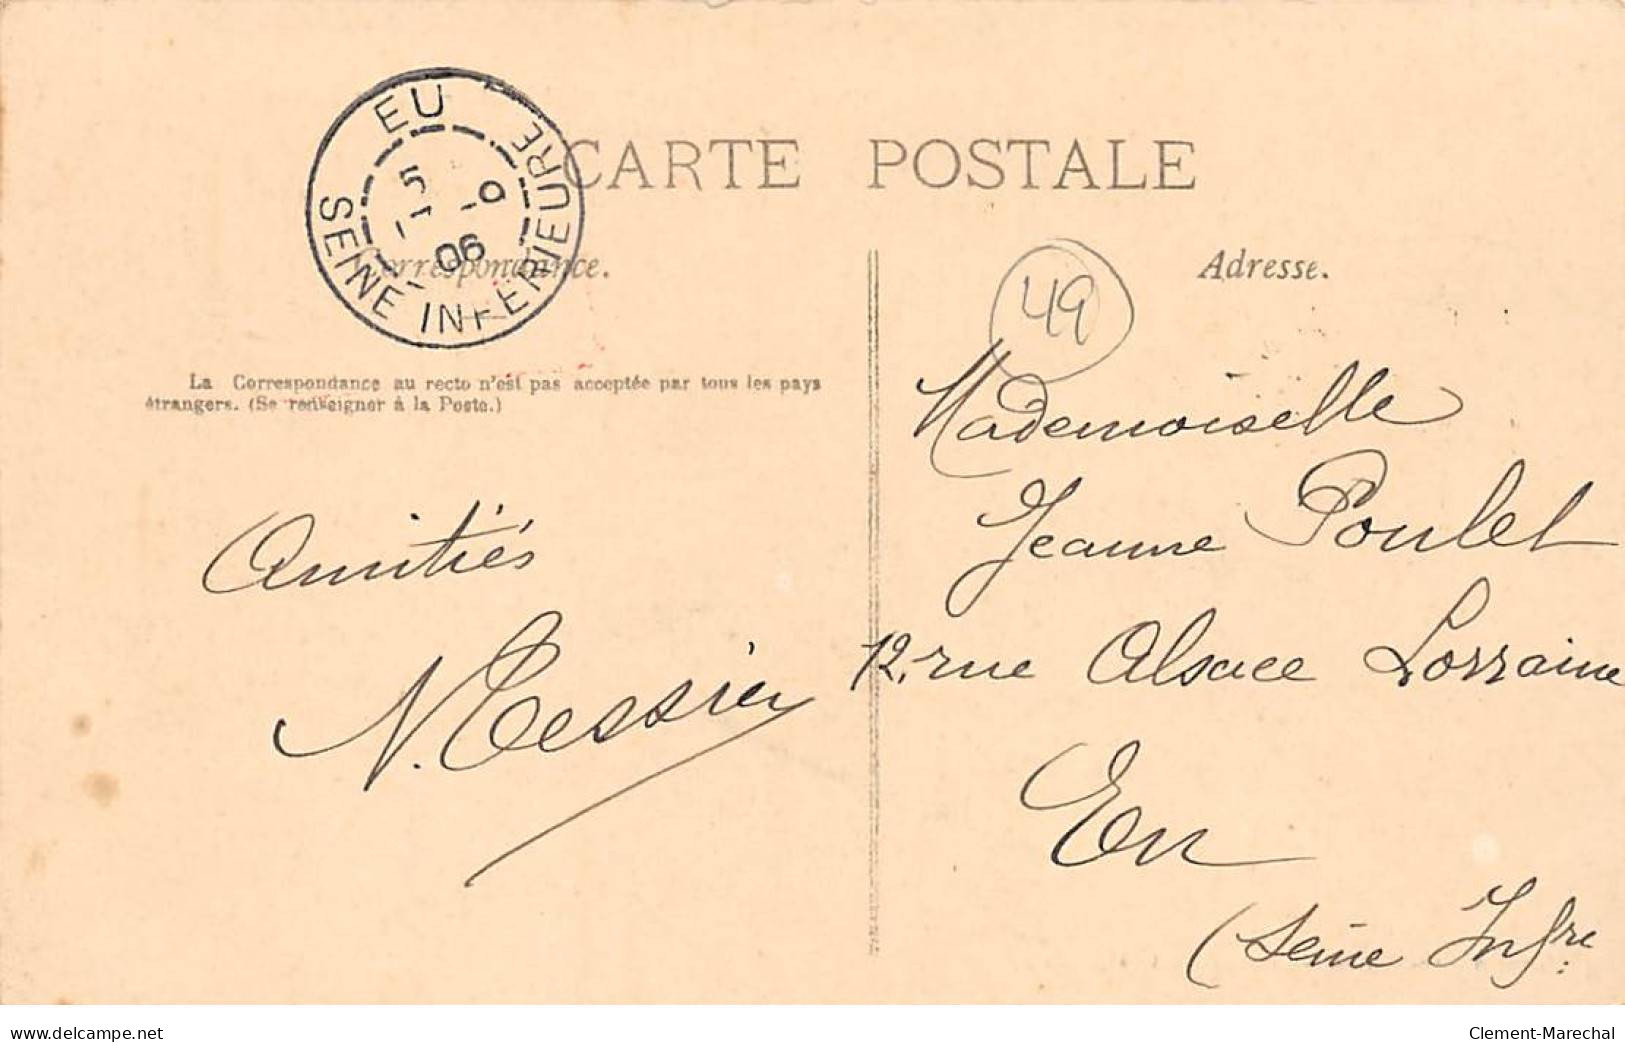 EU
SEINE INFERIEURE
06
CARTE POSTALE
Correspondance.
Adresse.
49
La Correspondance au recto n'est pas acceptée par tous les pays
étrangers. (Se renseigner à la Poste.)
Amitiés
N. Tessier
Mademoiselle
Jeanne Poulet
12, rue Alsace Lorraine
Eu
(Seine Infre
www.delcampe.net
Clement-Marechal